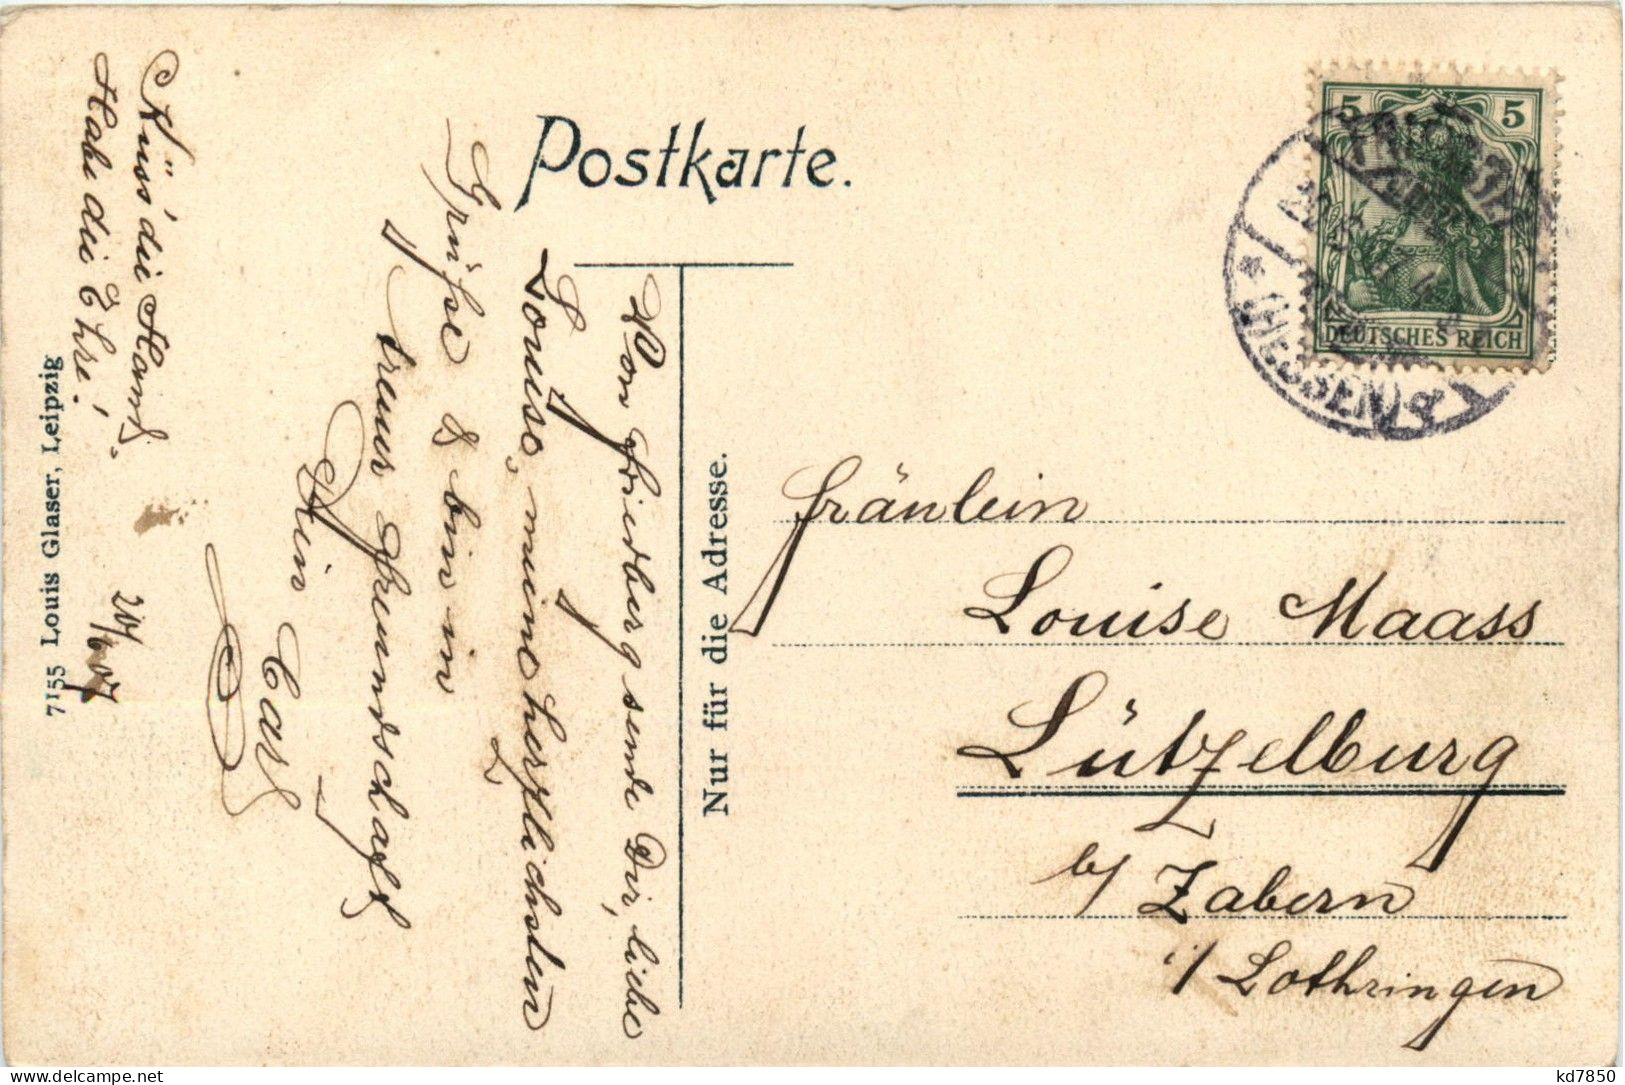 Postkarte.
5 5
DEUTSCHES REICH
(HESSEN)
Von Friedberg sende Dir, liebe
Louise, meine herzlichsten
Grüße & bin in
treuer Freundschaft
Dein Carl
Küss' die Hand.
Habe die Ehre!
20/6 07
7155 Louis Glaser, Leipzig
Nur für die Adresse.
Fräulein
Louise Maass
Lützelburg
b/ Zabern
i/ Lothringen
kd7850